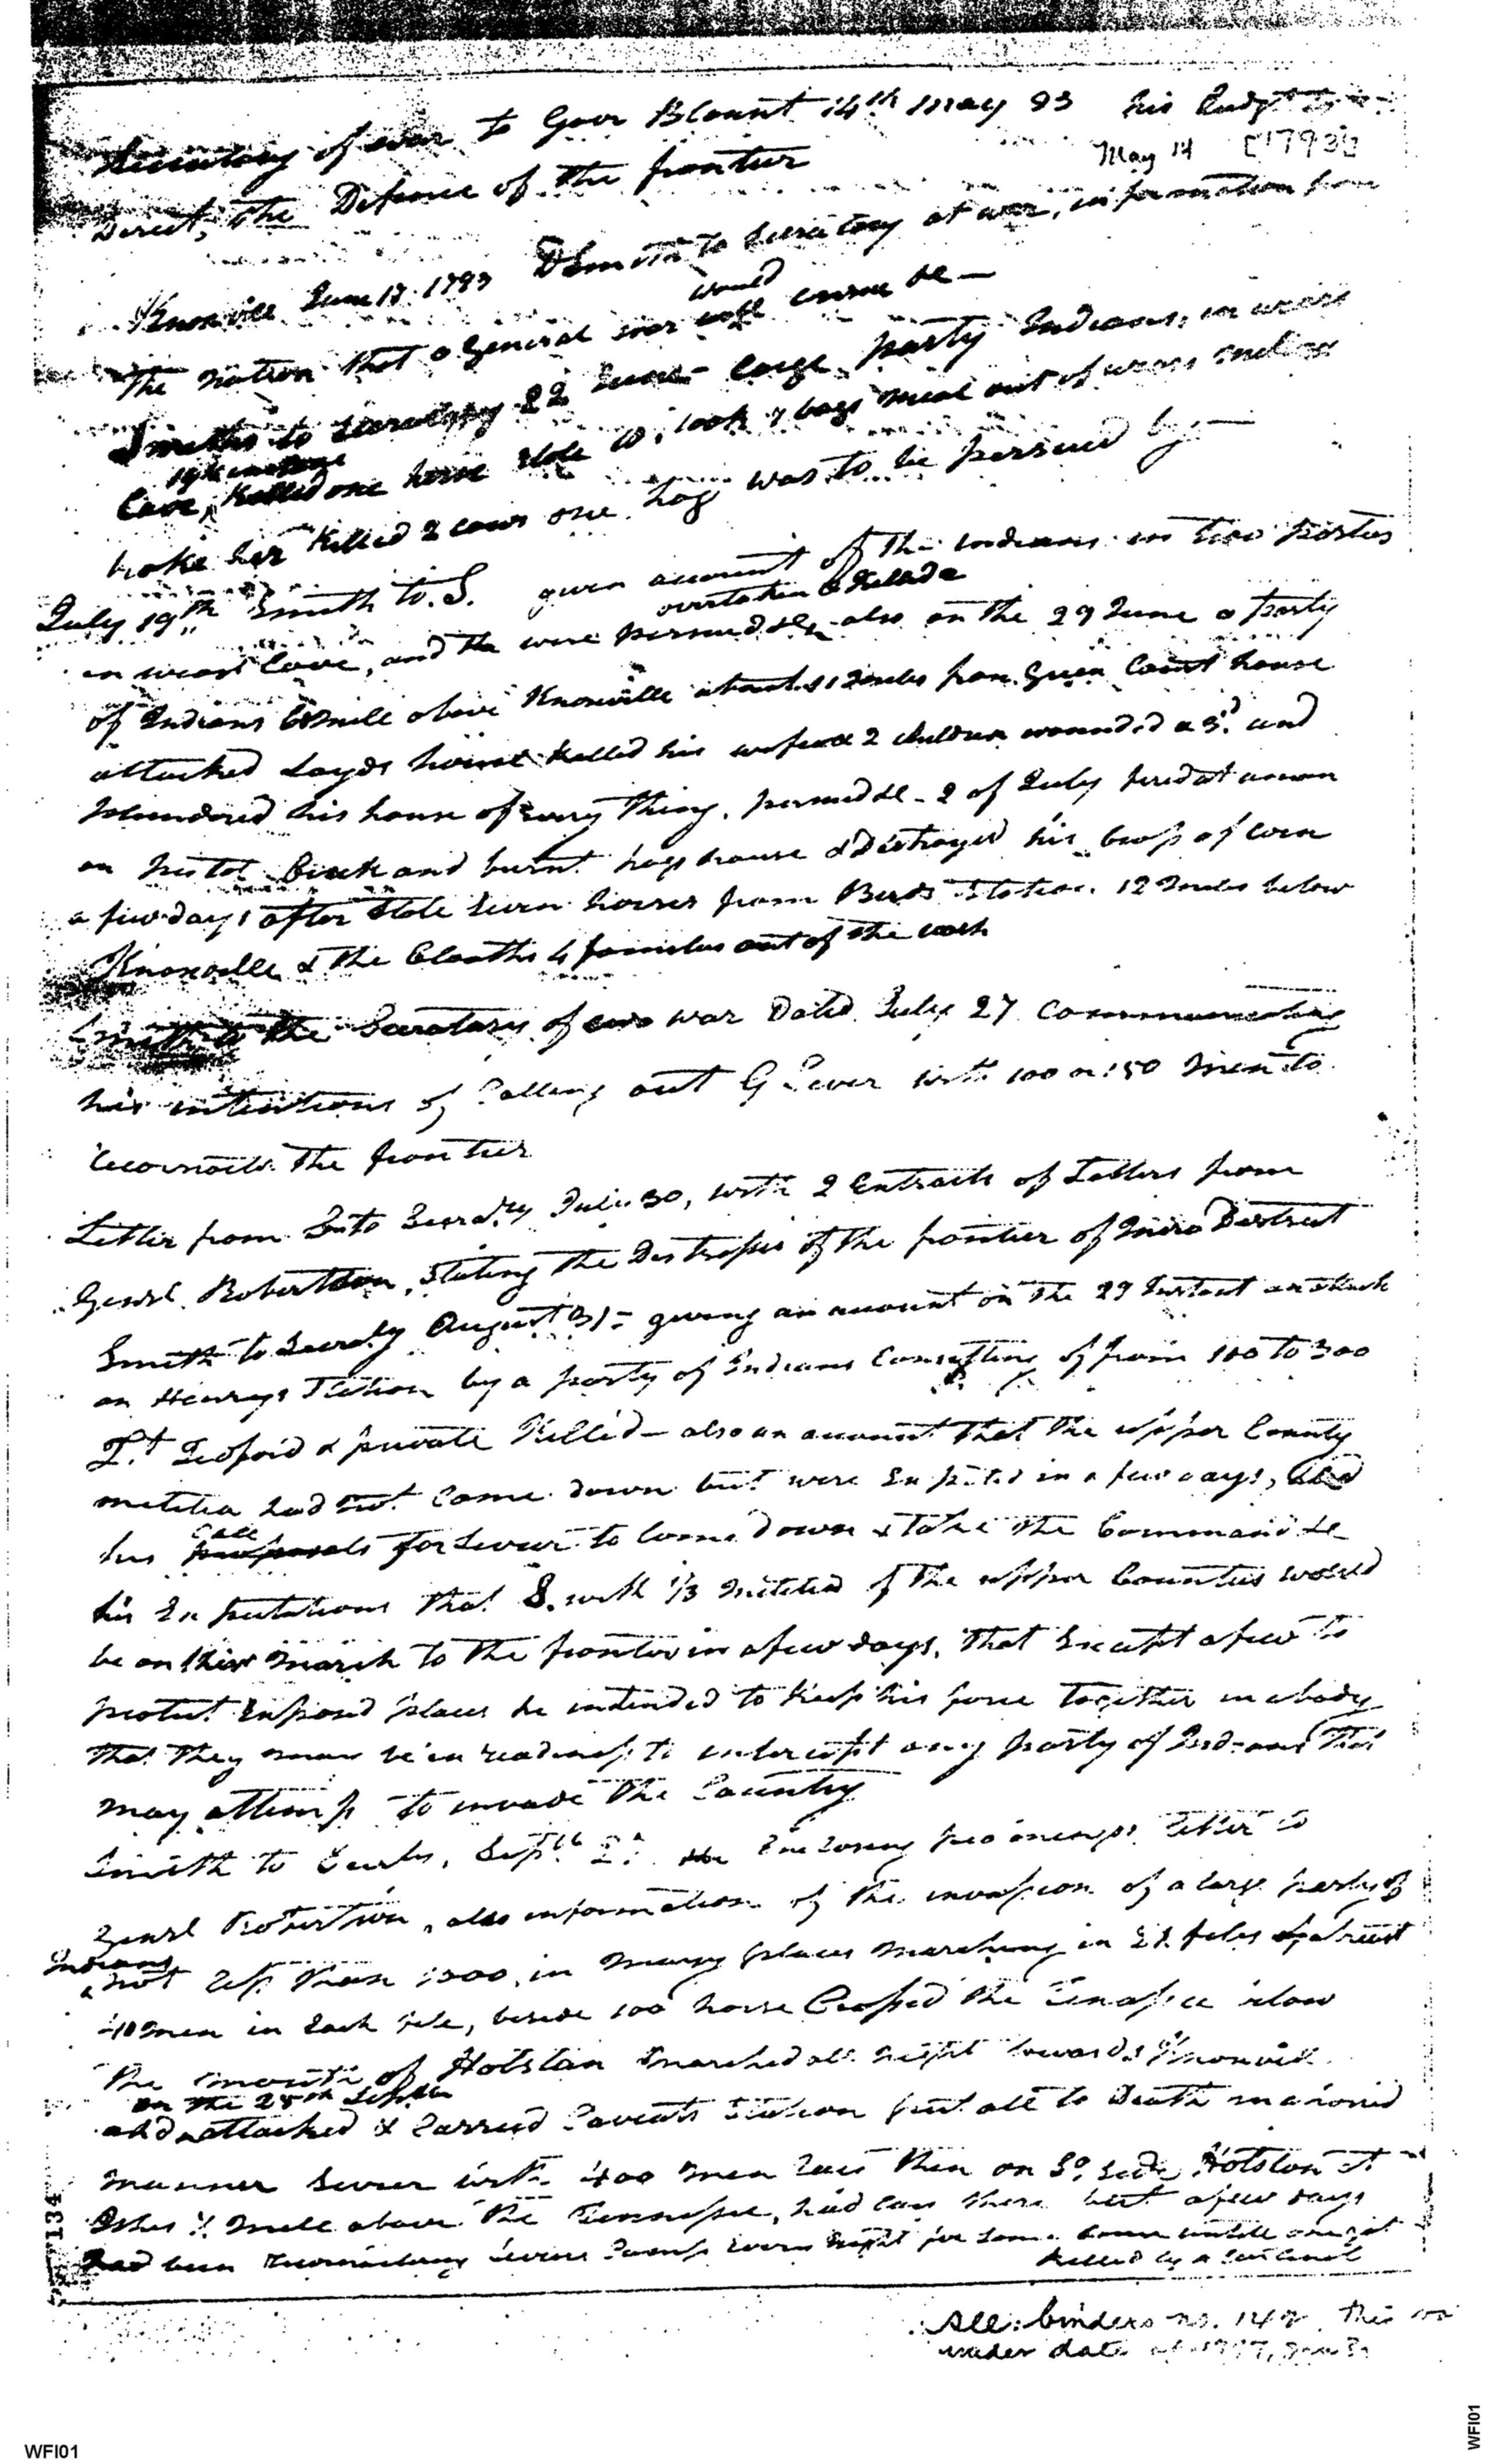 Secretary of war to Govr Blount 14th May 93 his Budget to
May 14 [1793]
Direct, the Defence of the frontier
Knoxville June 17. 1793 DSmith to Secratary at war, information from
would
the nation that a General war will insue &c —
Smiths to Secratary 22 June— large party Indians, in wears
19th instant
Cave, Killed one horse stole 10, took 7 bags meal out of wears mill &
broke her Killed 2 cows one hog was to be persued by —
July 19th Smith to. S. given account of the indians in two parties
overtaken & Killed 2
in wears Cove, and the were persued &c, also on the 29 June a party
of Indians 60 mile above Knoxville about 11 miles from Green Court house
attacked Loyds house Killed his wife & 2 children wounded a 3d. and
plundered his house of every thing, persued &c - 2 of July fired at a man
on Creek and burnt hogs house & Distroyed his Crop of Corn
a few days after Stole Seven horses from Beards Station 12 miles below
Knoxville & the Cloaths 4 families out of the wash
Smith to the Secratary of war Dated July 27 Communicating
his intentions of Calling out G Sevier with 100 or 150 Men to
the frontier
Letter from S to Secraty July 30, with 2 Extracts of Letters from
Genrl. Robertson, Stating the Distresses of the frontier of Miro District
Smith to Secraty August 31 - giving an account on the 29 Instant an attack
on Henrys Station by a party of Indians Consisting of from 100 to 300
Lt. Tedford & private Killed — also an account that the upper County
militia had not Come down but were Expected in a few days, and
Call
his for Sevier to Come Down & take the Command &c
his Expectations that S. with 1/3 militia of the upper Counties would
be on their march to the frontier in a few days, that Except a few to
protect Exposed places he intended to Keep his force together in a body
that they may be in readiness to intercept any party of Indians that
may attemp to invade the Country
Smith to Secraty, Septbr 2: Enclosing letter to
Genrl Robertson, also information of the invasion of a large party of
Indians
not less than 1000, in many places marching in 28 files abreast
40 men in Each file, beside 100 horse Crossed the Tenassee below
the mouth of Holstan & marched all night towards Knoxville
on the 25th Septbr
and attacked & Carried Caveats Station put all to Death in a horrid
manner Sevier with 400 men lais then on So. Side Holston at
Ishes mile above the Tennessee, had layn there but a few days
had been Seviers Camp every night for some time untill one got
Killed by a Centinel
134
See: binders no. 142 this
under date of 1797,
WFI01
WFI01